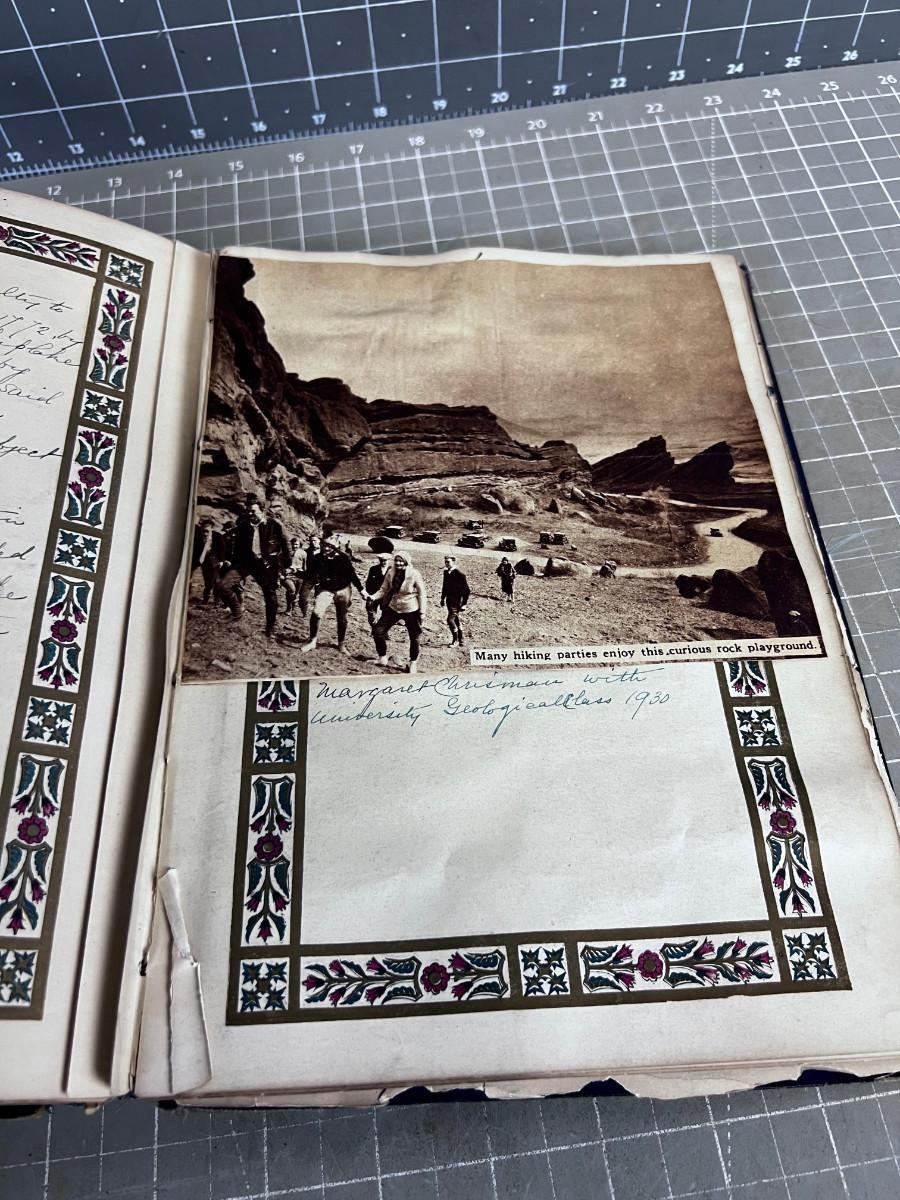 12 13 14 15 16 17 18 19 20 21 22 23 24 25 26
12 13 14 15 16 17 18 19 20 21 22 23 24 25 26
to
1772, by
by
said
Many hiking parties enjoy this curious rock playground.
Margaret Chrisman with
University Geological Class 1930